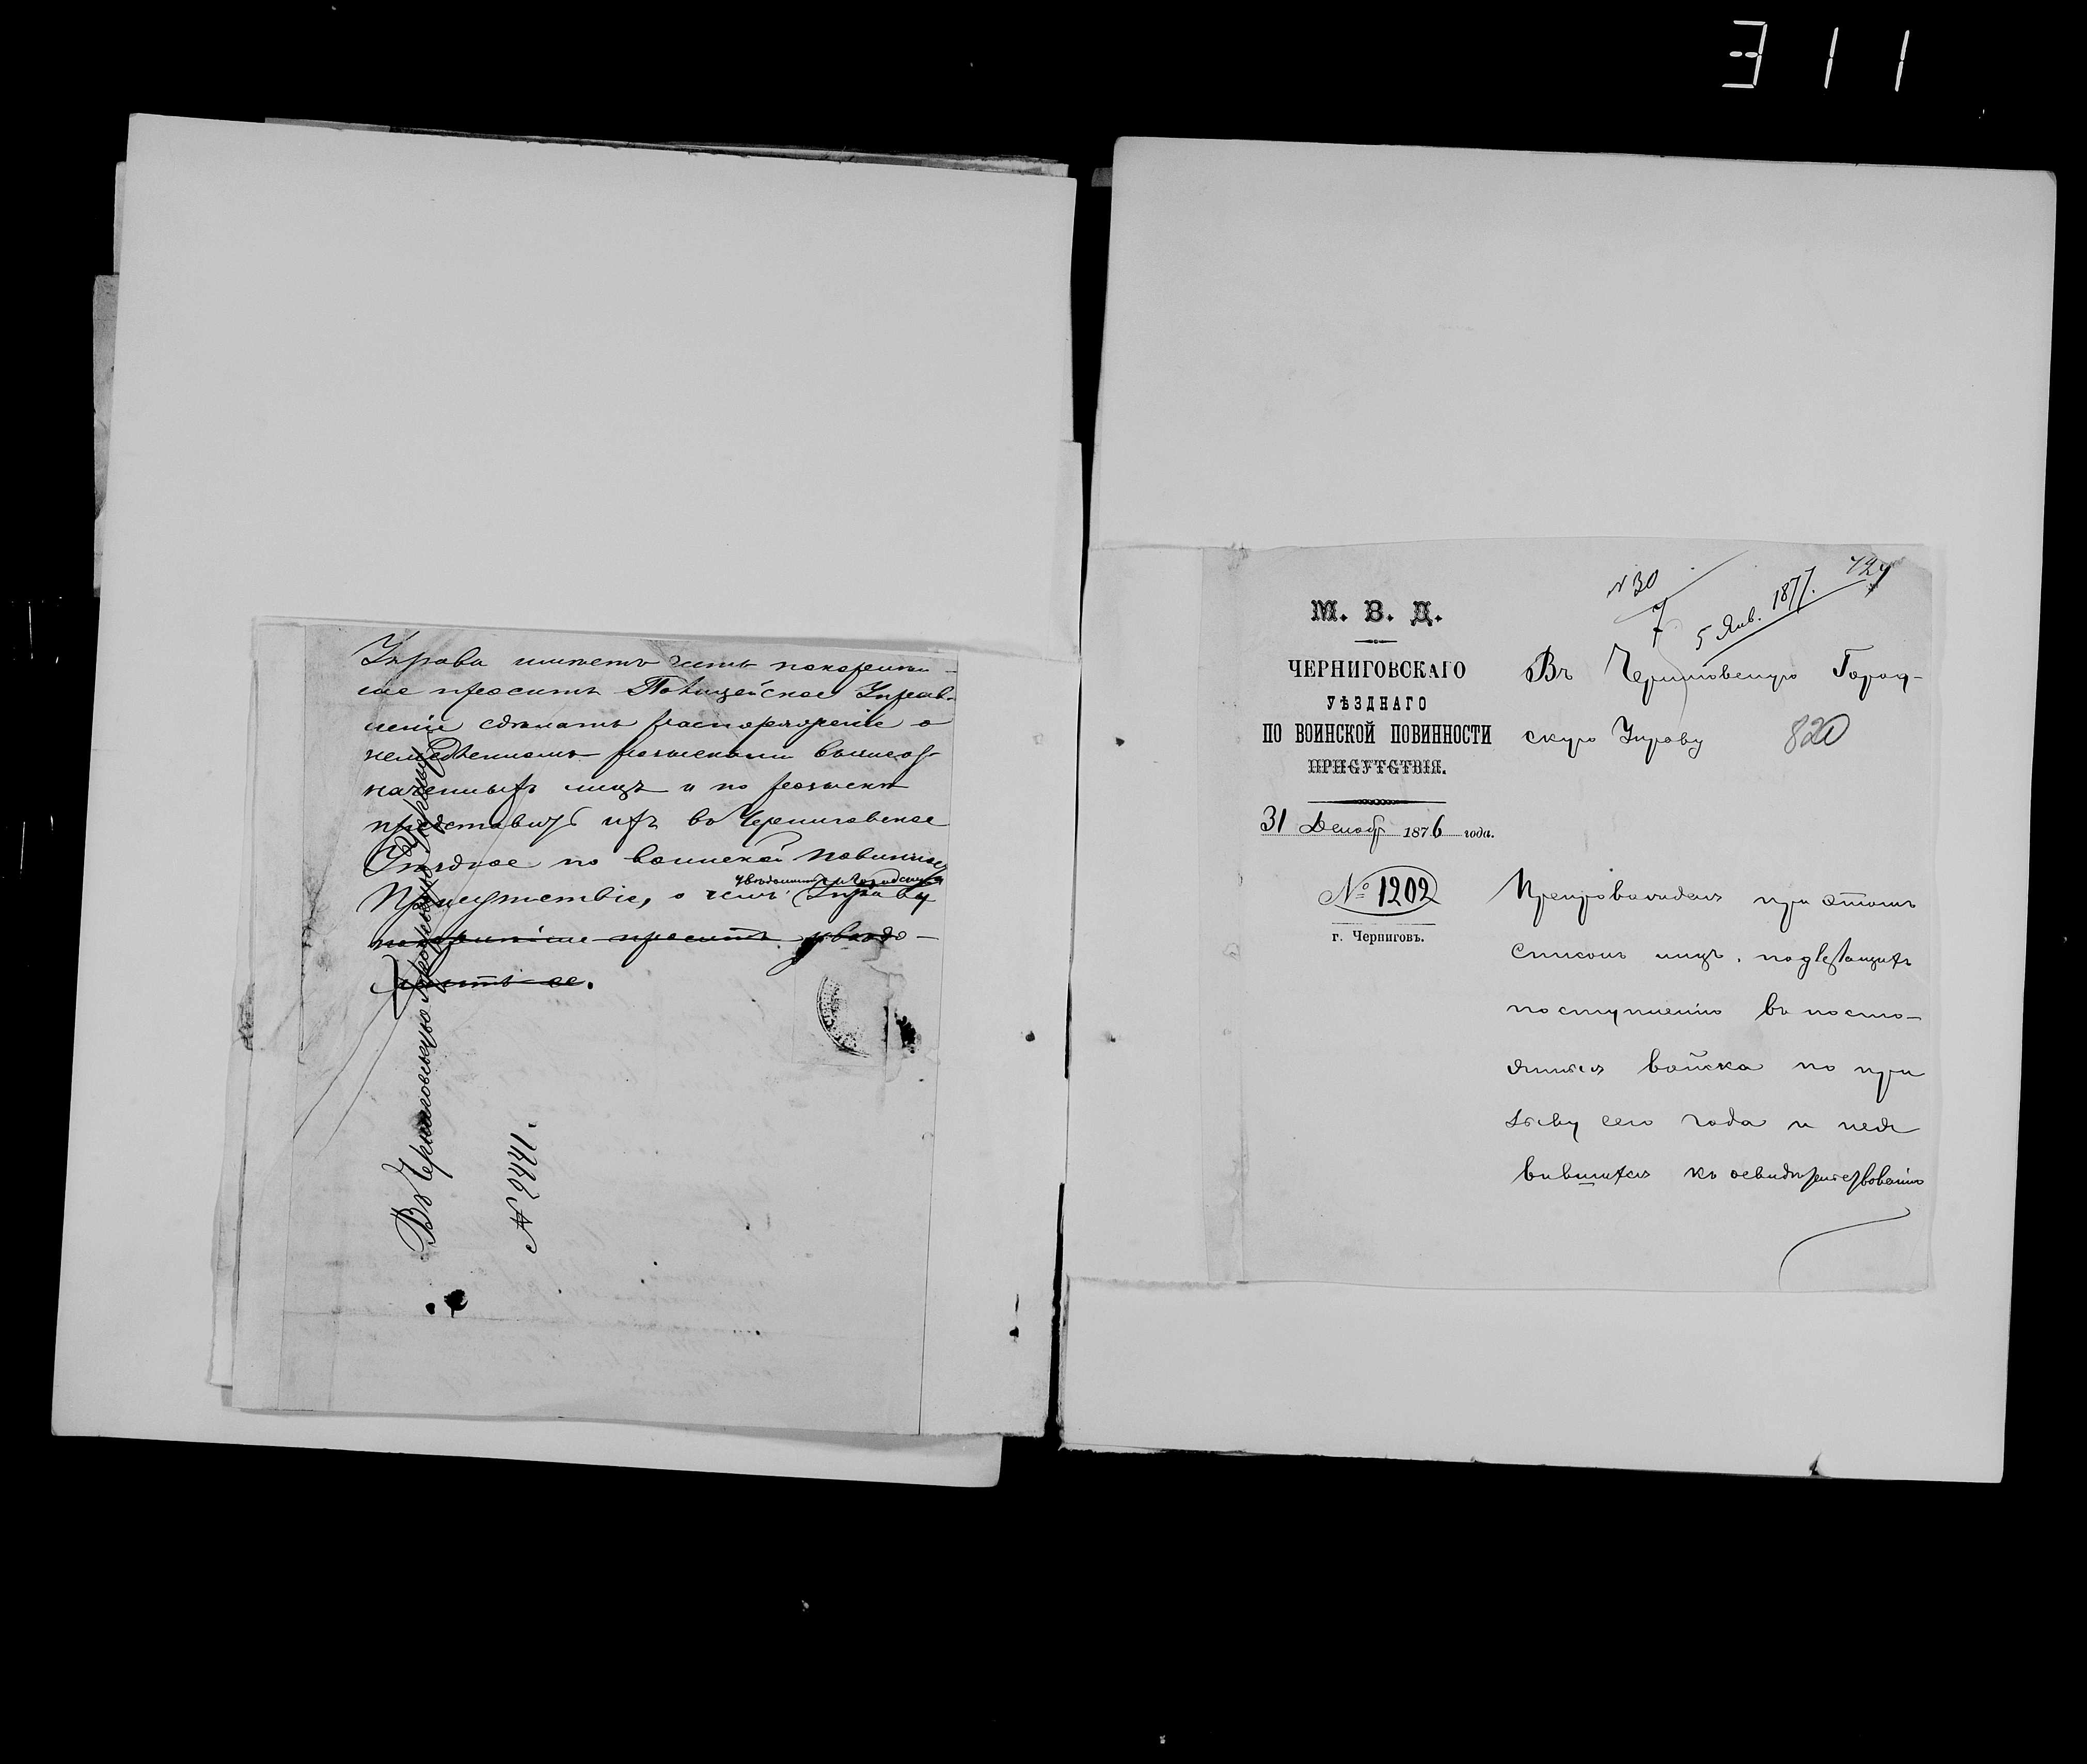 311
Управа имѣетъ честь покорнѣй-
ше просить Полицейское Управ-
леніе сдѣлать распоряженіе о
немедленномъ розысканіи вышеоз-
наченныхъ лицъ и по розыскѣ
представить ихъ въ Черниговское
Уѣздное по воинской повинности
Присутствіе, о чемъ
увѣдомить и Городскую
Управу
покорнѣйше проситъ увѣдо-
мить ее.
Въ Черниговскую Городскую Управу
№ 2441.
№ 30
7
5 Янв. 1877.
М. В. Д.
ЧЕРНИГОВСКАГО
УѢЗДНАГО
ПО ВОИНСКОЙ ПОВИННОСТИ
ПРИСУТСТВІЯ.
31 Декаб 1876 года.
№ 1202
г. Черниговъ.
Въ Черниговскую Город-
скую Управу
820
Препровождая при этомъ
списокъ лицъ, подлежащихъ
поступленію въ посто-
янныя войска по при
зыву сего года и неяв
вившихся къ освидѣтельствованію